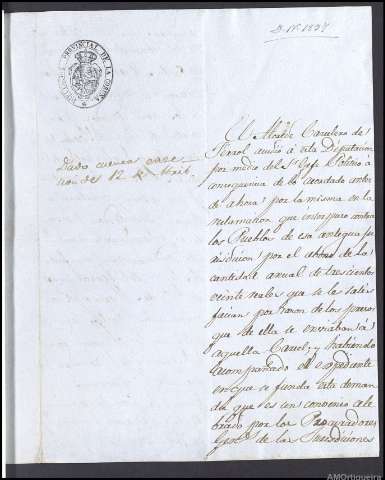 D. N. 1837
PROVINCIAL DE LA CORUÑA
El Alcalde Carcelero de
Ferrol acudió á esta Diputacion
por medio del Sr. Gefe Politico á
consequencia de lo acordado antes
de ahora por la misma en la
reclamacion que interpuso contra
los Pueblos de esa antigua ju
risdiccion por el abono de la
cantidad anual de trescientos
veinte reales que se le satis
facian por razon de los presos
que de ella se enviaban á
aquella Carcel; y habiendo
acompañado el espediente
en que se funda esta deman
da que es un convenio cele
brado por los Procuradores
Grales. de las Jurisdicciones
Dado cuenta en se
sion del 12 de Abril.
AMOrtigueira